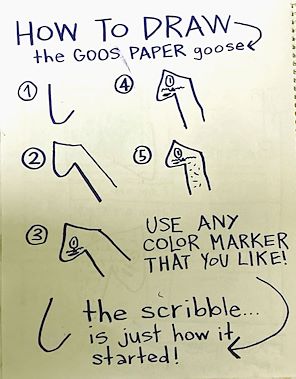 HOW TO DRAW
the GOOS PAPER goose
1
4
2
5
3
USE ANY
COLOR MARKER
THAT YOU LIKE!
the scribble...
is just how it
started!